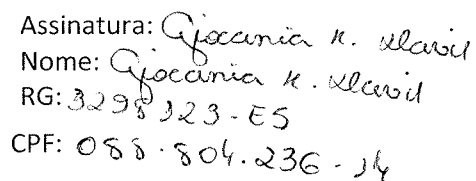 Assinatura: Giocania K.
Nome: Giocania K.
RG: 3298323-ES
CPF: 088.804.236-14